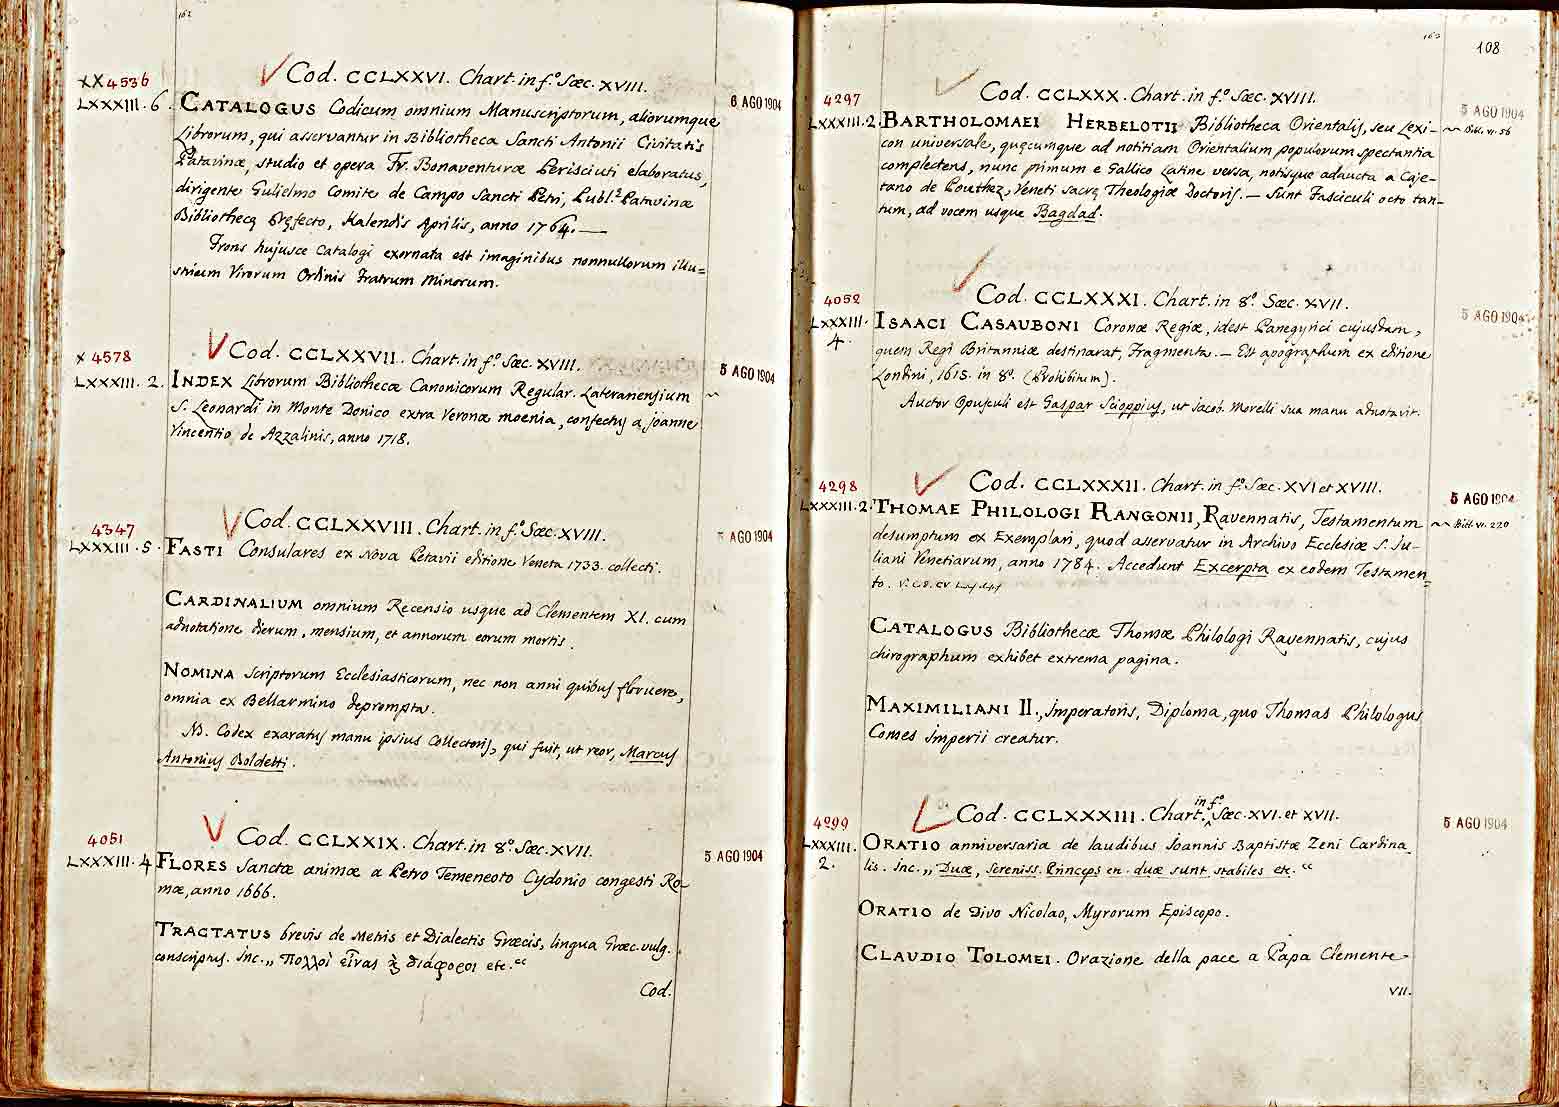 162
Cod. CCLXXVI. Chart. in fº. Sæc. XVIII.
XX4536
LXXXIII. 6.
6 AGO 1904
CATALOGUS Codicum omnium Manuscriptorum, aliorumque
Librorum, qui asservantur in Bibliotheca Sancti Antonii Civitatis
Patavinæ, studio et opera Fr. Bonaventuræ Perisciuti elaboratus,
dirigente Gulielmo Comite de Campo Sancti Petri, Publ.ᶜ Patavinæ
Bibliothecę Pręfecto, Kalendis Aprilis, anno 1764. —
Frons hujusce Catalogi exornata est imaginibus nonnullorum illu=
strium Virorum Ordinis Fratrum Minorum.
Cod. CCLXXVII. Chart. in fº. Sæc. XVIII.
X 4578
LXXXIII. 2.
5 AGO 1904
INDEX Librorum Bibliothecæ Canonicorum Regular. Lateranensium
S. Leonardi in Monte Donico extra Veronæ moenia, confectus a Joanne
Vincentio de Azzalinis, anno 1718.
Cod. CCLXXVIII. Chart. in fº. Sæc. XVIII.
4347
LXXXIII. 5.
5 AGO 1904
FASTI Consulares ex Nova Petavii editione Veneta 1733. collecti.
CARDINALIUM omnium Recensio usque ad Clementem XI. cum
adnotatione dierum, mensium, et annorum eorum mortis.
NOMINA Scriptorum Ecclesiasticorum, nec non anni quibus floruere,
omnia ex Bellarmino deprompta.
NB. Codex exaratus manu ipsius Collectoris, qui fuit, ut reor, Marcus
Antonius Boldetti.
Cod. CCLXXIX. Chart. in 8º. Sæc. XVII.
4051
LXXXIII. 4
5 AGO 1904
FLORES Sanctæ animæ a Petro Temeneoto Cydonio congesti Ro-
mæ, anno 1666.
TRACTATUS brevis de Metris et Dialectis Græcis, lingua Græc. vulg.
conscriptus. Inc. „ Πολλοὶ εἶνας ϗ̀ διάφοροι etc.“
Cod.
163
108
Cod. CCLXXX. Chart. in fº. Sæc. XVIII.
4297
LXXXIII. 2.
5 AGO 1904
Bibl. vi. 56
BARTHOLOMAEI HERBELOTII Bibliotheca Orientalis, seu Lexi-
con universale, quęcumque ad notitiam Orientalium populorum spectantia
complectens, nunc primum e Gallico Latine versa, notisque adaucta a Caje-
tano de Pouthez, Veneti sacrę Theologiæ Doctoris. — Sunt Fasciculi octo tan-
tum, ad vocem usque Bagdad.
Cod. CCLXXXI. Chart. in 8º. Sæc. XVII.
4052
LXXXIII.
4.
5 AGO 1904
ISAACI CASAUBONI Coronæ Regiæ, idest Panegyrici cujusdam,
quem Regi Britanniæ destinarat, Fragmenta. — Est apographum ex editione
Londini, 1615. in 8º. (Prohibitum).
Auctor Opusculi est Gaspar Scioppius, ut Jacob. Morelli sua manu adnotavit.
Cod. CCLXXXII. Chart. in fº. Sæc. XVI et XVIII.
4298
LXXXIII. 2.
5 AGO 1904
Bibl. vi. 220
THOMAE PHILOLOGI RANGONII, Ravennatis, Testamentum
desumptum ex Exemplari, quod asservatur in Archivo Ecclesiæ S. Ju-
liani Venetiarum, anno 1784. Accedunt Excerpta ex eodem Testamen=
to.
CATALOGUS Bibliothecæ Thomæ Philologi Ravennatis, cujus
chirographum exhibet extrema pagina.
MAXIMILIANI II., Imperatoris, Diploma, quo Thomas Philologus
Comes Imperii creatur.
Cod. CCLXXXIII. Chart. in fº. Sæc. XVI. et XVII.
4299
LXXXIII.
2.
5 AGO 1904
ORATIO anniversaria de laudibus Joannis Baptistæ Zeni Cardina_
lis. Inc. „ Duæ, Sereniss. Princeps en. duæ sunt stabiles etc.“
ORATIO de Divo Nicolao, Myrorum Episcopo.
CLAUDIO TOLOMEI. Orazione della pace a Papa Clemente
VII.